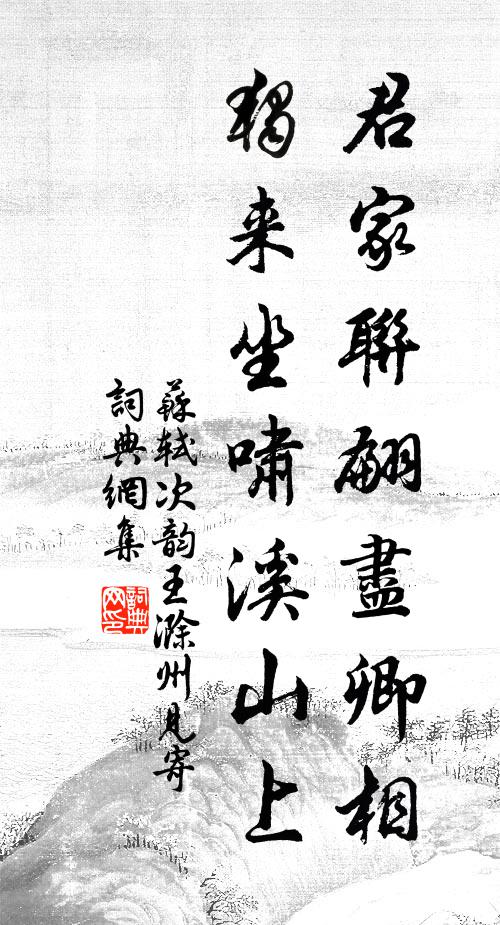 君家聯翩盡卿相
獨来坐嘯溪山上
蘇軾次韵王滁州見寄
詞典網集
詞典网印